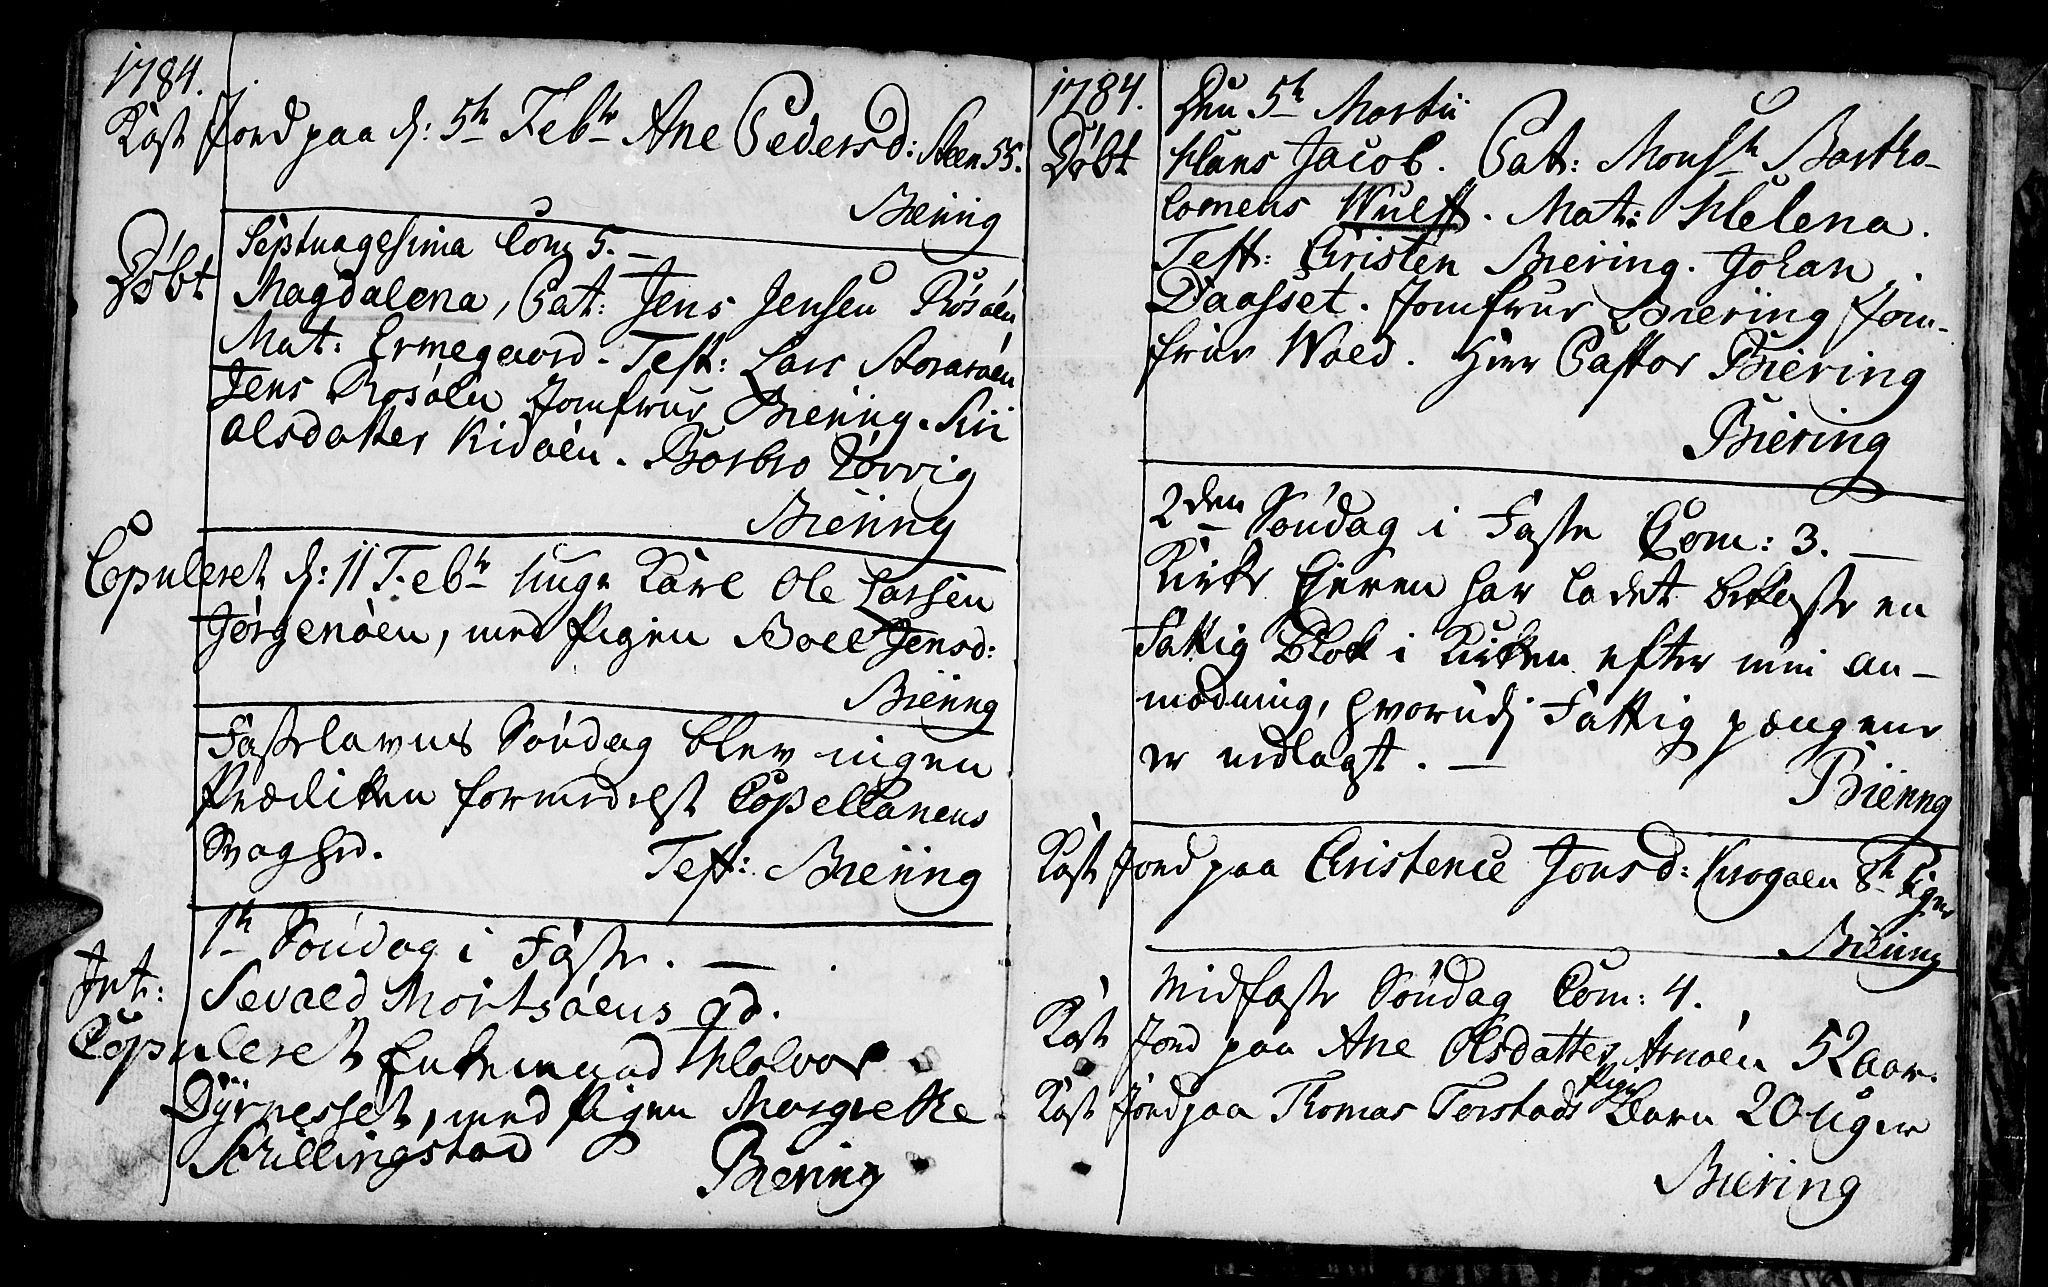 1784.
Kast Jord paa d: 5te Febr Ane Pedersd: Steen 55.
Biering
Septuagesima Com 5. –
Døbt
Magdalena, Pat: Jens Jensen Rósøen
Mat: Ermegaard. Test: Lars
Jens Rosøen Jomfrue Biering. Siri
Olsdatter Kidøen. Barbro Rørvig
Biering
Copuleret d: 11 Febr unge Karl Ole Larsen
Jørgenøen, med Pigen Boel Jensd:
Biering
Fastelavns Søndag blev ingen
Prædiken formedelst Capellanens
Svaghed.
Test: Biering
1te Søndag i Faste. –
Int:
Sevald Mortsøens qd.
Copuleret Enkemand Halvor
Dÿrnesset, med Pigen Margrethe
Schillingstad
Biering
1784.
Den 5te Martii
Døbt
Hans Jacob. Pat: Monsr Bartho-
lomeus Wulff. Mat: Helena.
Test: Christen Biering. Johan
Daasset. Jomfrue Biering Jom-
frue Wold. Herr Pastor Biering
Biering
2den Søndag i Faste Com: 3. –
Kirke Ejeren har ladet bekoste en
Fattig Blok i Kirken efter min an-
modning, hvorudj Fattig pængene
er nedlagt. –
Biering
Kast Jord paa Christence Jonsd: Krogøen 8te Uger
Biering
Midfaste Søndag Com: 4.
Kast Jord paa Ane Olsdatter Arnøen 52 aar.
Kast Jord paa Thomas Torstads Pige Barn 20 uger
Biering